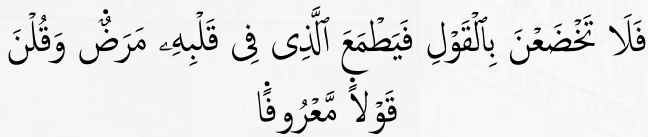 فَلَا تَخْضَعْنَ بِٱلْقَوْلِ فَيَطْمَعَ ٱلَّذِى فِى قَلْبِهِۦ مَرَضٌ وَقُلْنَ
قَوْلًا مَّعْرُوفًا